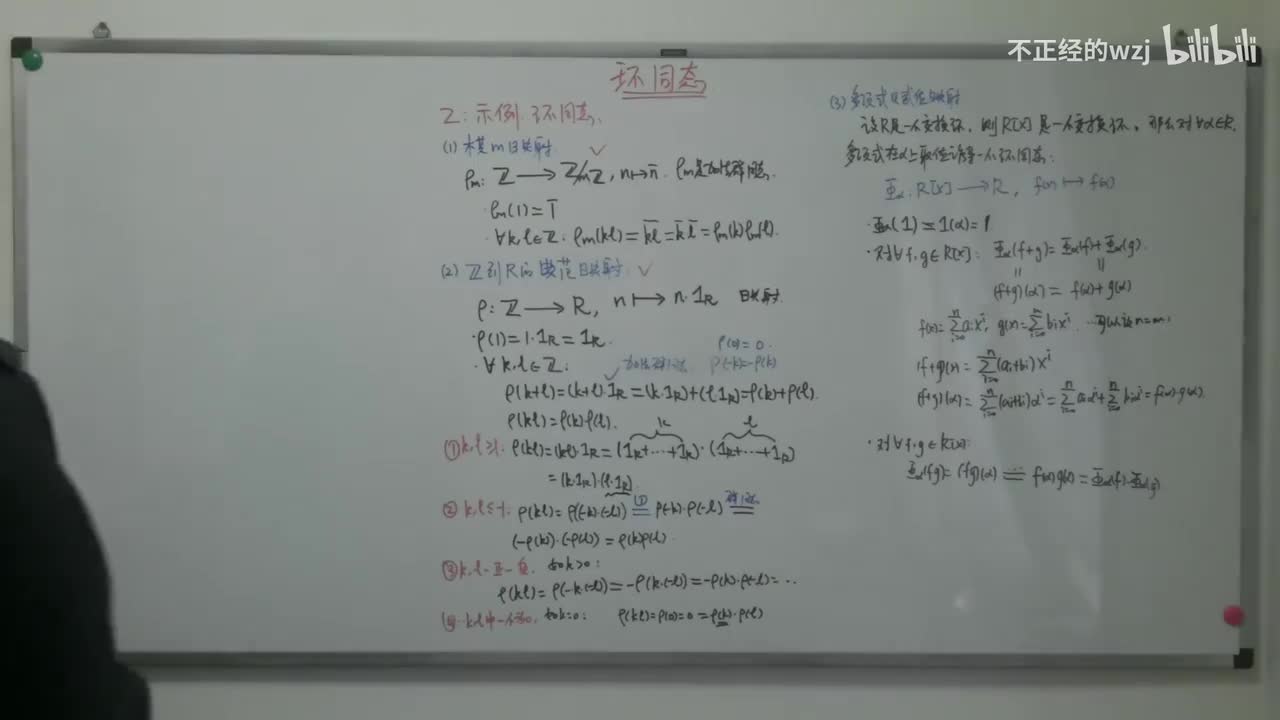 不正经的wzj bilibili
环同态
2：示例.环同态.
(1) 模m映射 ✓
ρm: ℤ ⟶ ℤ/mℤ, n↦n̄. ρm是加法群同态.
· ρm(1)=1̄
· ∀k,l∈ℤ. ρm(kl)=k̄l̄=k̄ l̄=ρm(k)ρm(l).
(2) ℤ到R的典范映射. ✓
ρ: ℤ ⟶ R, n ⟼ n·1R 映射.
· ρ(1)=1·1R=1R. ρ(0)=0.
· ∀ k,l∈ℤ. 加法群同态 ρ(-k)=-ρ(k)
ρ(k+l)=(k+l)·1R=(k·1R)+(l·1R)=ρ(k)+ρ(l).
ρ(kl)=ρ(k)ρ(l). k l
① k,l≥1. ρ(kl)=(kl)·1R=(1R+⋯+1R)·(1R+⋯+1R)
=(k·1R)·(l·1R)
② k,l≤-1. ρ(kl)=ρ((-k)·(-l)) ①= ρ(-k)·ρ(-l) =
(-ρ(k))·(-ρ(l))=ρ(k)ρ(l).
③ k,l一正一负. 如k>0:
ρ(kl)=ρ(-k·(-l))=-ρ(k·(-l))=-ρ(k)·ρ(-l)=⋯
④ k,l中一个为0. 如k=0: ρ(kl)=ρ(0)=0=ρ(k)·ρ(l)
(3) 多项式取值映射
设R是一个交换环, 则R[X]是一个交换环, 那么对∀α∈R,
多项式在α上取值诱导一个环同态:
Φα: R[X] ⟶ R, f(x) ⟼ f(α)
· Φα(1)=1(α)=1
· 对∀f,g∈R[X]: Φα(f+g)=Φα(f)+Φα(g).
‖ ‖
(f+g)(α)= f(α)+g(α)
f(x)=∑aixⁱ, g(x)=∑bixⁱ. 可以设n=m.
(f+g)(x)=∑(ai+bi)xⁱ
(f+g)(α)=∑(ai+bi)αⁱ=∑aiαⁱ+∑biαⁱ=f(α)+g(α)
· 对∀f,g∈R[X]:
Φα(fg)=(fg)(α)=f(α)g(α)=Φα(f)·Φα(g)